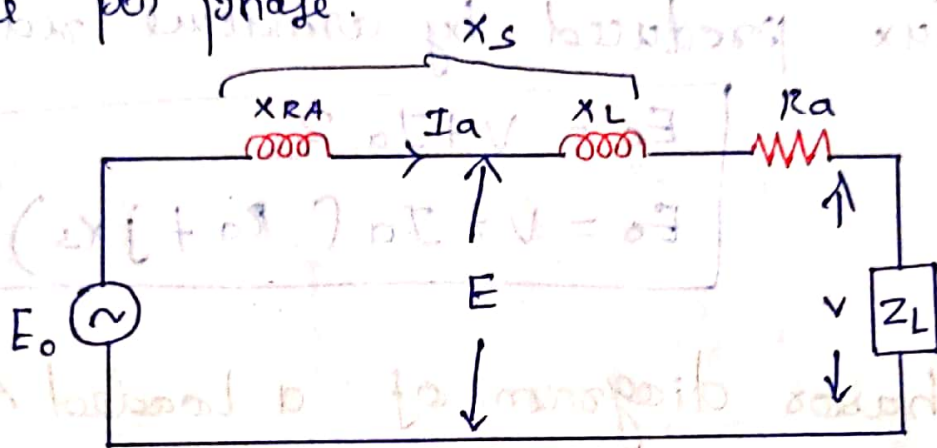 per phase.
Xs
XRA Ia XL Ra
E
E₀ V ZL